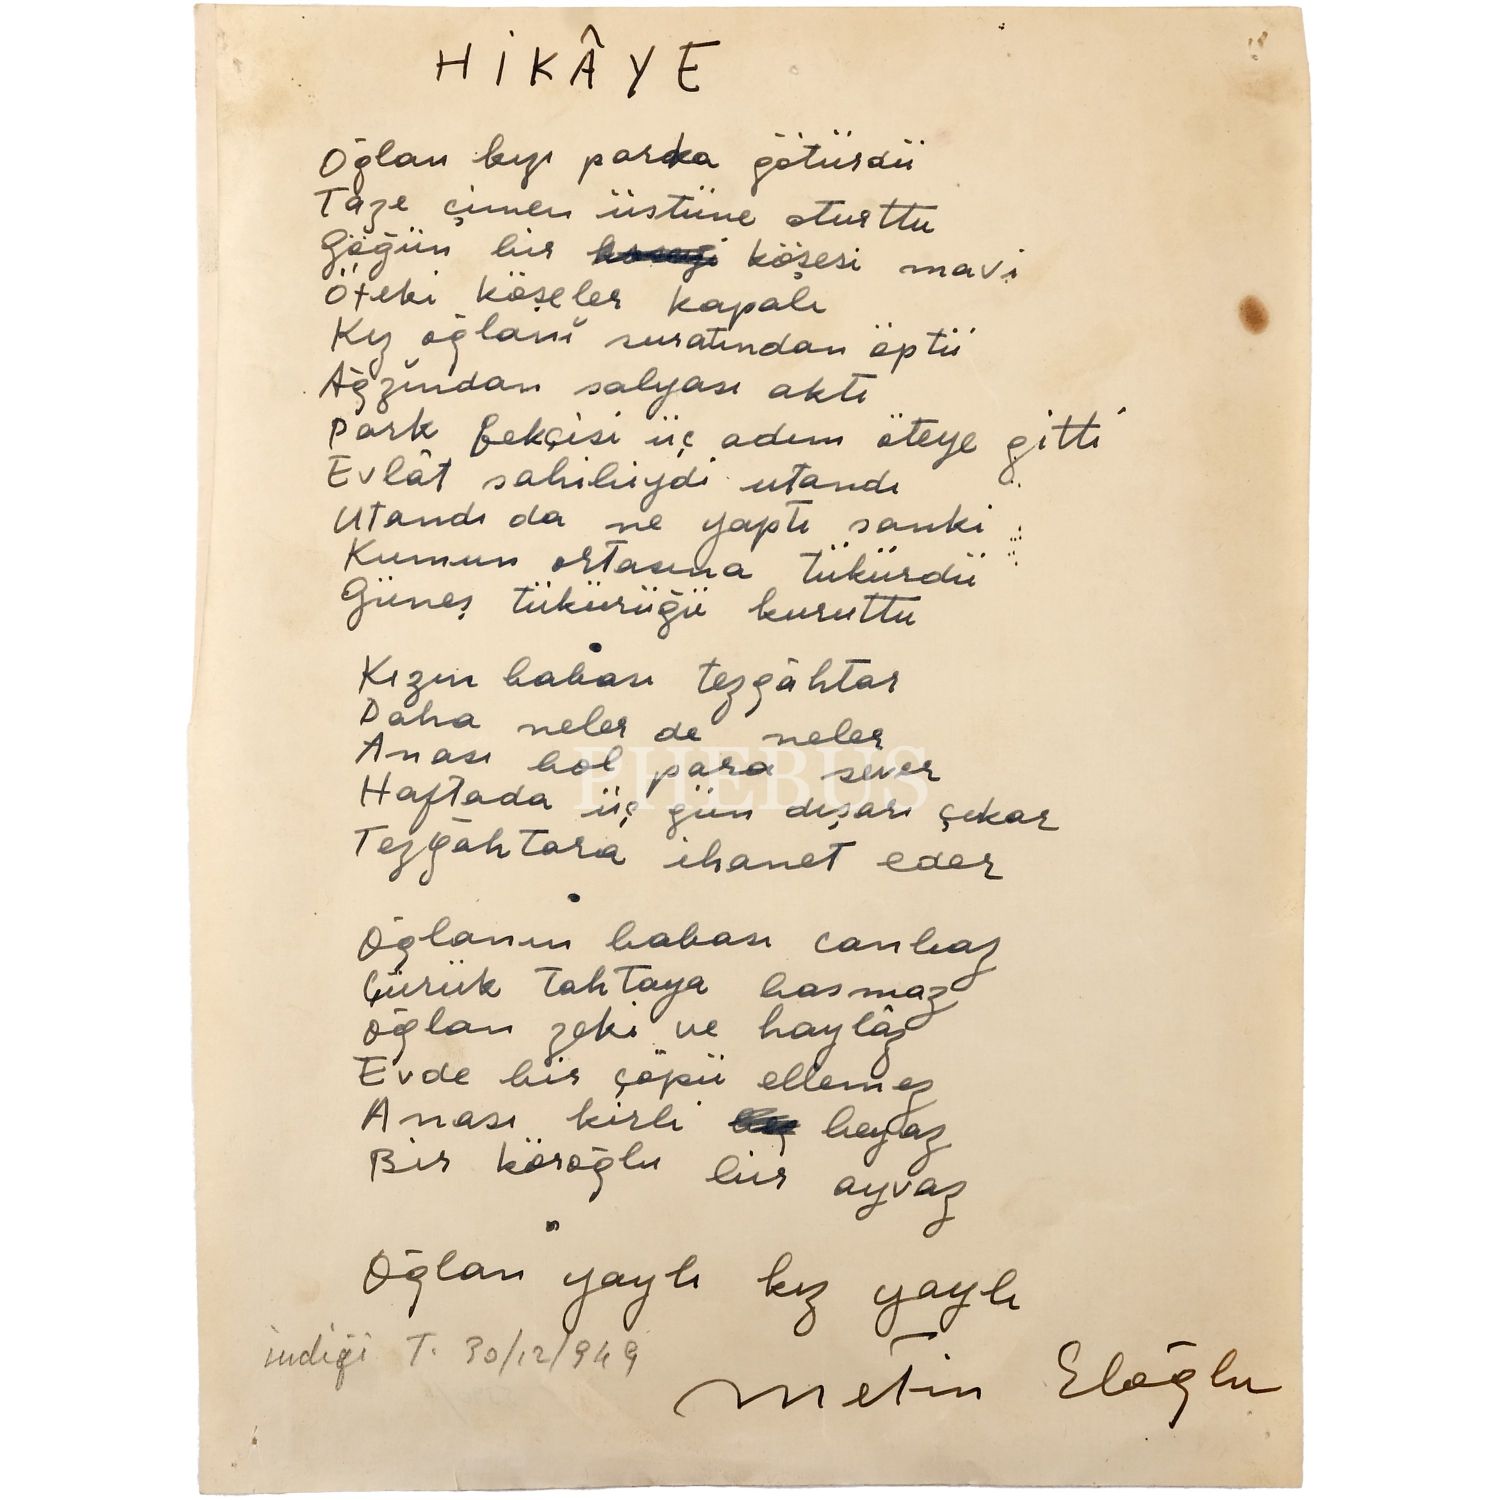 HİKÂYE
Oğlan kızı parka götürdü
Taze çimen üstüne oturttu
Göğün bir köşesi mavi
Öteki köşeler kapalı
Kız oğlanı suratından öptü
Ağzından salyası aktı
Park bekçisi üç adım öteye gitti
Evlât sahibiydi utandı
Utandı da ne yaptı sanki
Kumun ortasına tükürdü
Güneş tükürüğü kuruttu
Kızın babası tezgâhtar
Daha neler de neler
Anası bol para sever
Haftada üç gün dışarı çıkar
Tezgâhtara ihanet eder
Oğlanın babası canbaz
Çürük tahtaya basmaz
Oğlan zeki ve haylâz
Evde bir çöpü ellemez
Anası kirli beyaz
Bir köroğlu bir ayvaz
Oğlan yaylı kız yaylı
indiği T. 30/12/949
Metin Eloğlu
PHEBUS